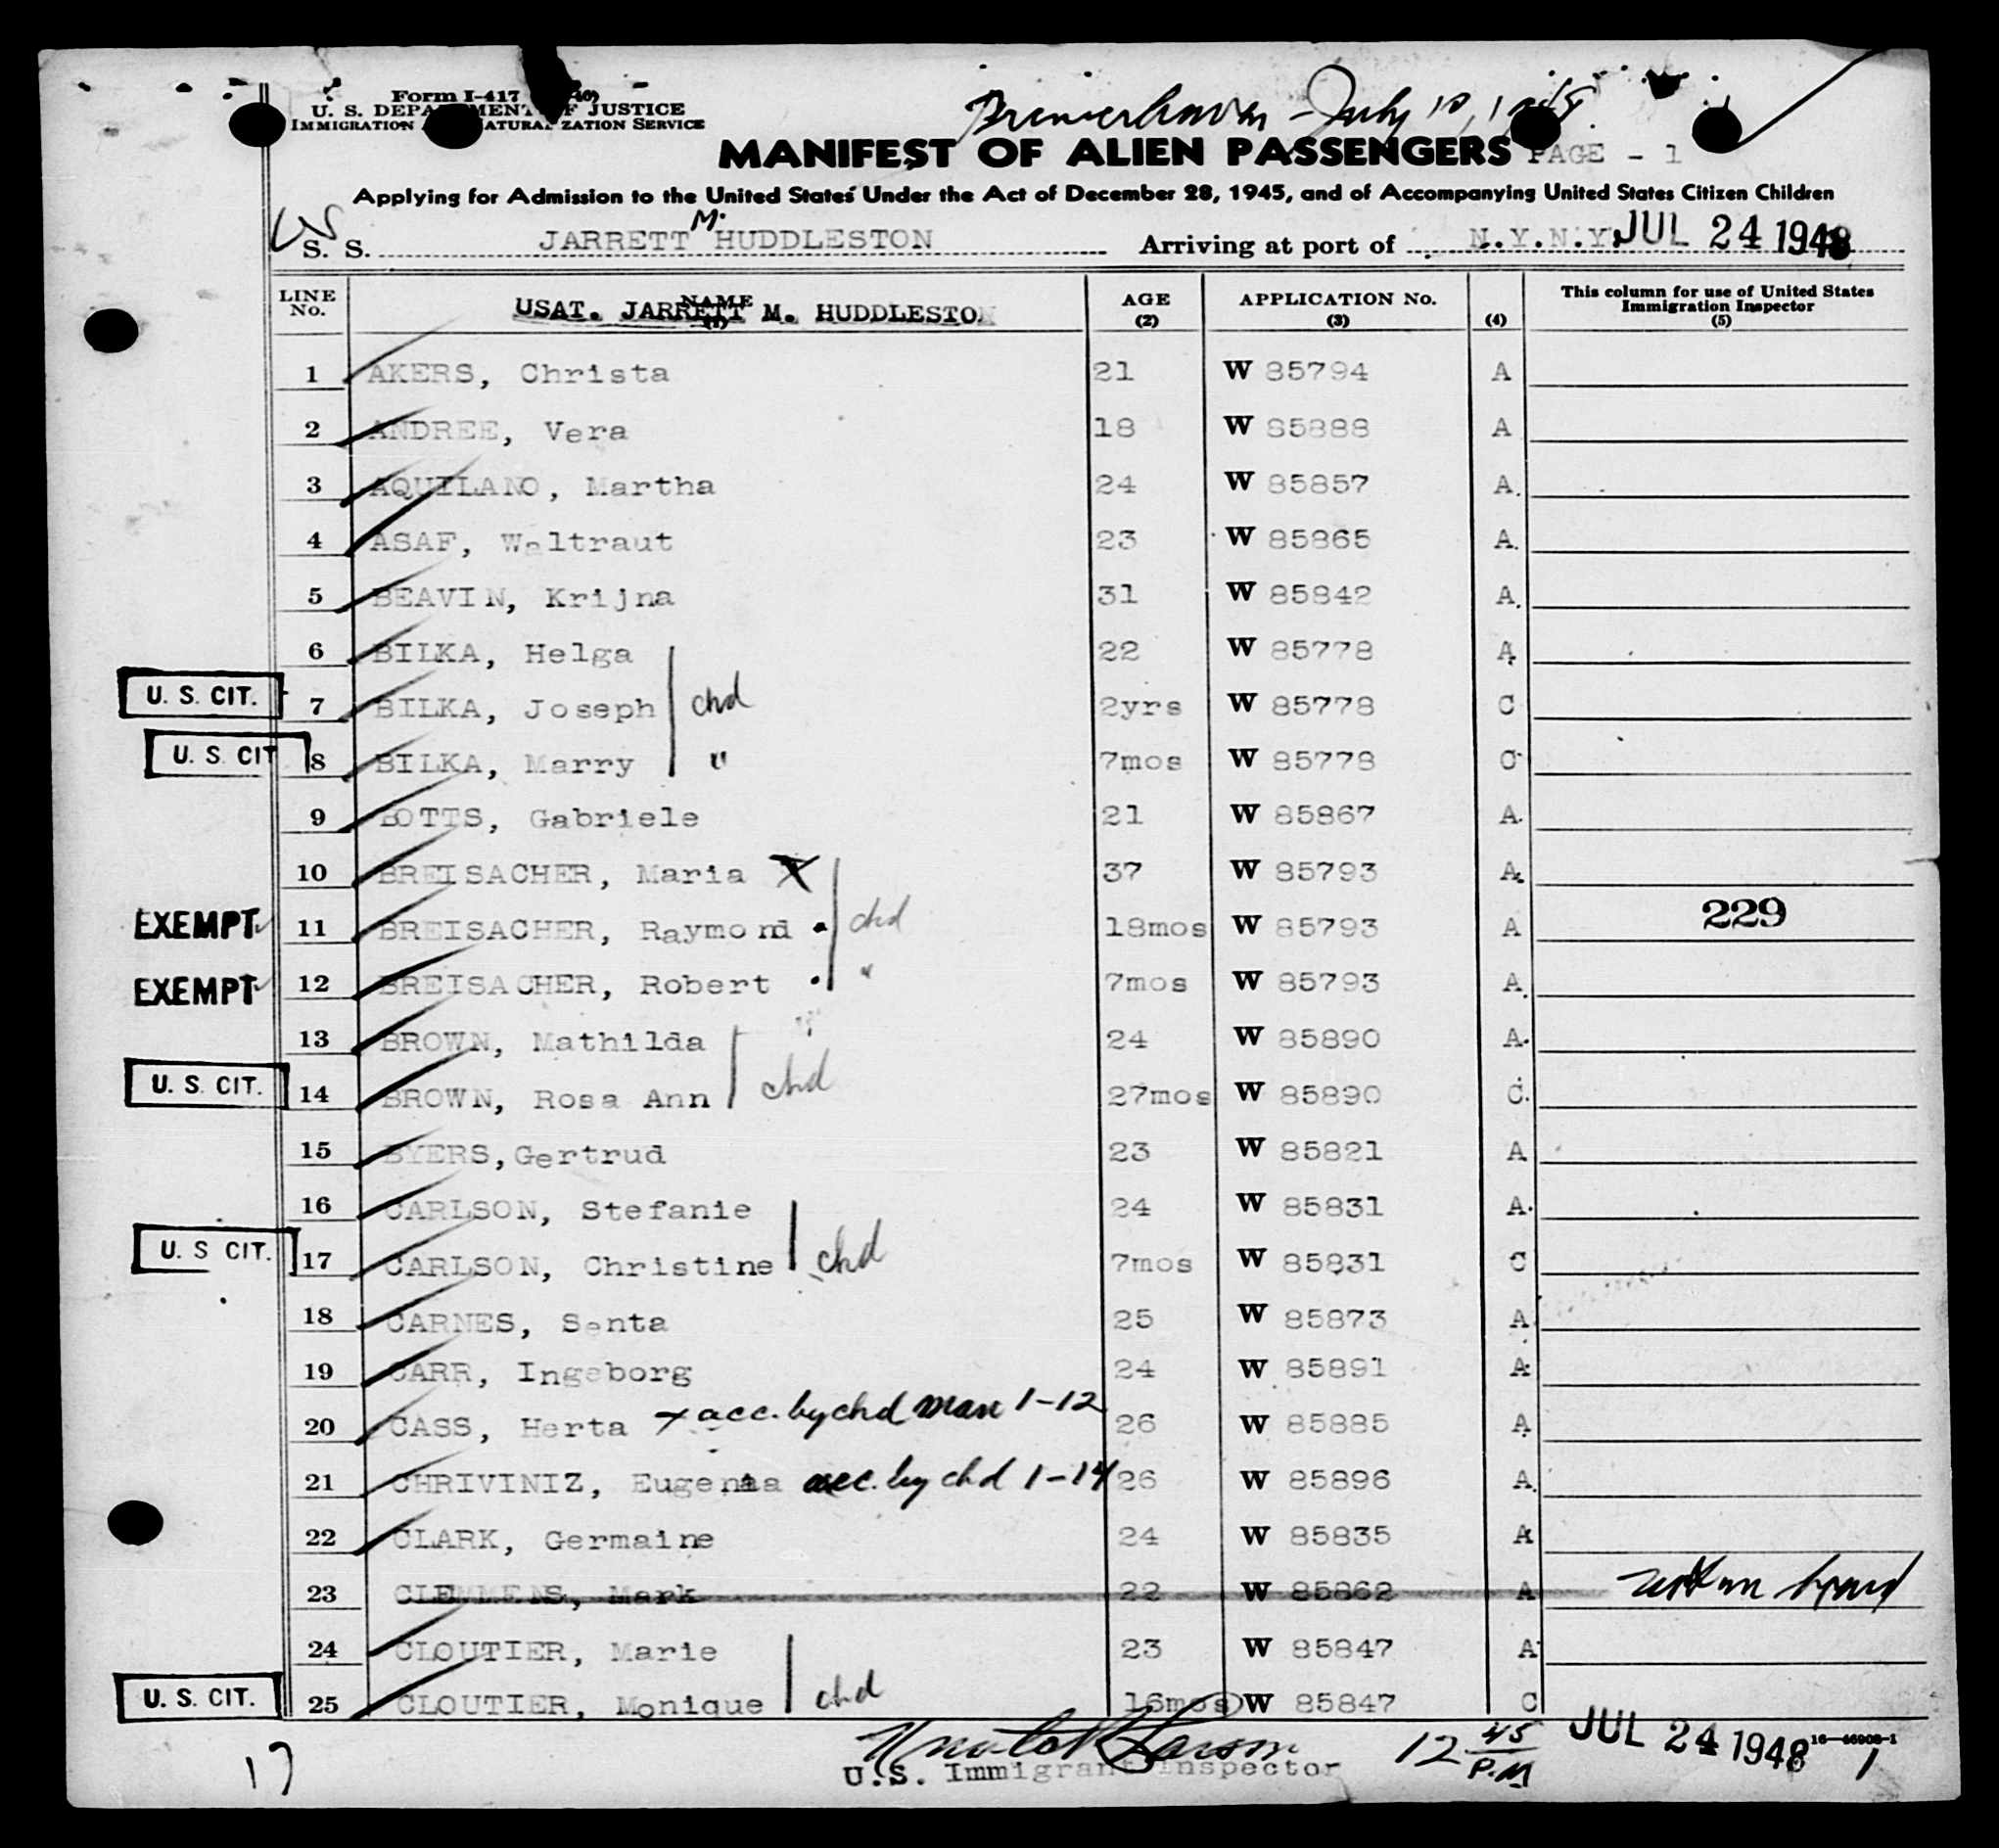 Form I-417
U. S. DEPARTMENT OF JUSTICE
IMMIGRATION AND NATURALIZATION SERVICE
Bremerhaven - July 10, 1948
MANIFEST OF ALIEN PASSENGERS PAGE - 1
Applying for Admission to the United States Under the Act of December 28, 1945, and of Accompanying United States Citizen Children
S. S. JARRETT M. HUDDLESTON Arriving at port of N.Y.N.Y. JUL 24 1948
LINE No. NAME (1) AGE (2) APPLICATION No. (3) (4) This column for use of United States Immigration Inspector (5)
USAT. JARRETT M. HUDDLESTON
1 AKERS, Christa 21 W 85794 A
2 ANDREE, Vera 18 W 85888 A
3 AQUILANO, Martha 24 W 85857 A.
4 ASAF, Waltraut 23 W 85865 A.
5 BEAVIN, Krijna 31 W 85842 A.
6 BILKA, Helga 22 W 85778 A
U. S. CIT. 7 BILKA, Joseph chd 2yrs W 85778 C
U. S. CIT 8 BILKA, Marry " 7mos W 85778 C
9 BOTTS, Gabriele 21 W 85867 A.
10 BREISACHER, Maria X 37 W 85793 A.
EXEMPT 11 BREISACHER, Raymond chd 18mos W 85793 A 229
EXEMPT 12 BREISACHER, Robert " 7mos W 85793 A.
13 BROWN, Mathilda 24 W 85890 A.
U. S. CIT. 14 BROWN, Rosa Ann chd 27mos W 85890 C.
15 BYERS,Gertrud 23 W 85821 A
16 CARLSON, Stefanie 24 W 85831 A.
U. S CIT. 17 CARLSON, Christine chd 7mos W 85831 C
18 CARNES, Senta 25 W 85873 A
19 CARR, Ingeborg 24 W 85891 A
20 CASS, Herta x acc. by chd man 1-12 26 W 85885 A
21 CHRIVINIZ, Eugenia acc. by chd 1-14 26 W 85896 A
22 CLARK, Germaine 24 W 85835 A
23 CLEMMENS, Mark 22 W 85862 A not on board
24 CLOUTIER, Marie 23 W 85847 A
U. S. CIT. 25 CLOUTIER, Monique chd 16mos W 85847 C
17 12 45 P.M JUL 24 1948 16-46908-1
U.S. Immigrant Inspector 1